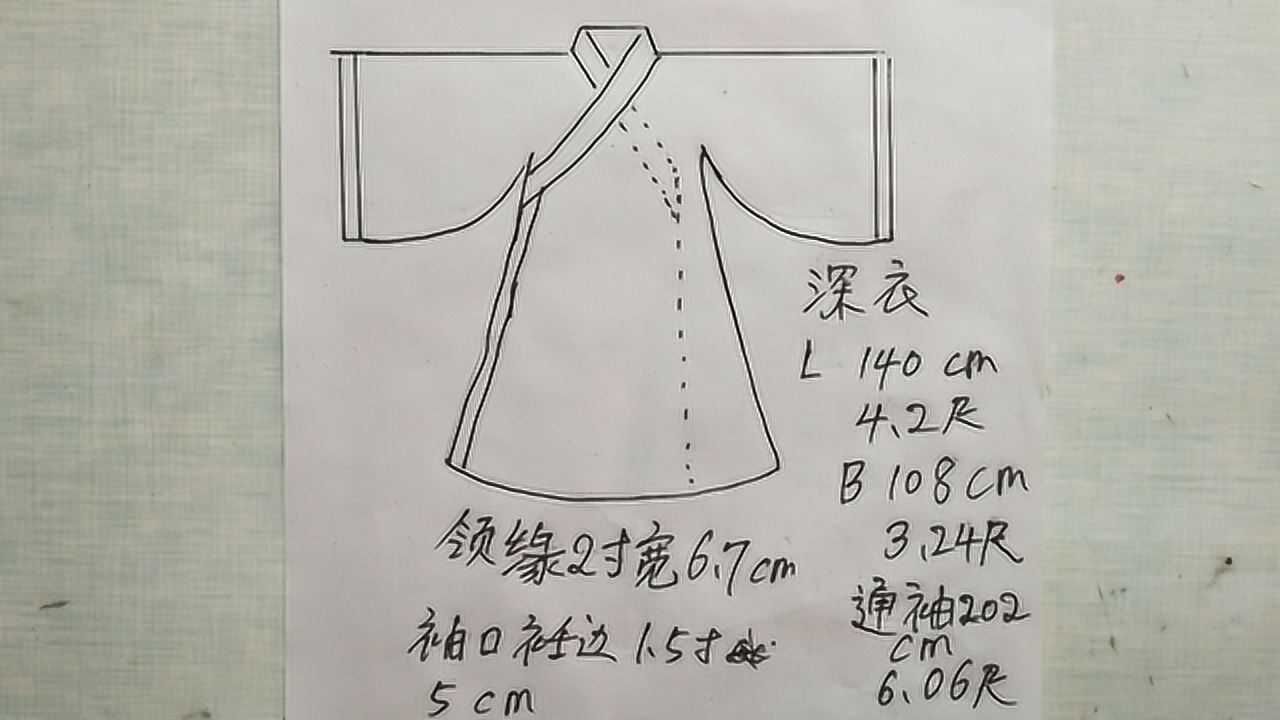 深衣
L 140 cm
4.2尺
B 108cm
3.24尺
通袖202
cm
6.06尺
领缘2寸宽6.7cm
袖口衽边 1.5寸
5cm